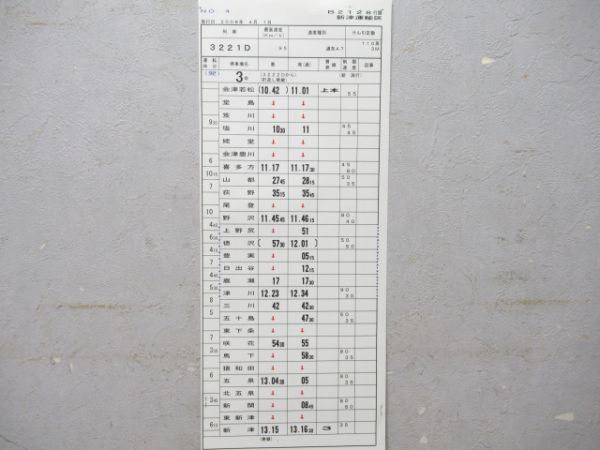 NO. 4
B2128行路
新津運輸区
施行日 2008年 4月 1日
列車 最高速度(Km/h) 速度種別 けん引定数
3221D 95 通気A7 110系 3M
運転時分 停車場名 着 発(通) 着発線 制限速度 記事
(92) 3両 (3222Dから) 折返し乗継
会津若松 (10.42) 11.01 上本 55
堂島 ↓ ↓
笈川 ↓ ↓
9 塩川 10 30 11 45 45
姥堂 ↓ ↓
会津豊川 ↓ ↓
6 喜多方 11.17 11.17 30 45 60
10 15 山都 27 45 28 15 50 35
7 荻野 35 15 35 45
尾登 ↓ ↓
10 野沢 11.45 45 11.46 15
4 45 上野尻 ↓ 51
6 徳沢 (57 30 12.01) 50 50
4 15 豊実 ↓ 05 15
7 日出谷 ↓ 12 15
4 45 鹿瀬 17 17 30
津川 12.23 12.34
8 三川 42 42 30
5 五十島 ↓ 47 30
東下条 ↓ ↓
7 咲花 54 30 55
馬下 ↓ 58 30
猿和田 ↓ ↓
6 五泉 13.04 30 05
北五泉 ↓ ↓
新関 ↓ 08 45
東新津 ↓ ↓
新津 13.15 13.16 30 3 35